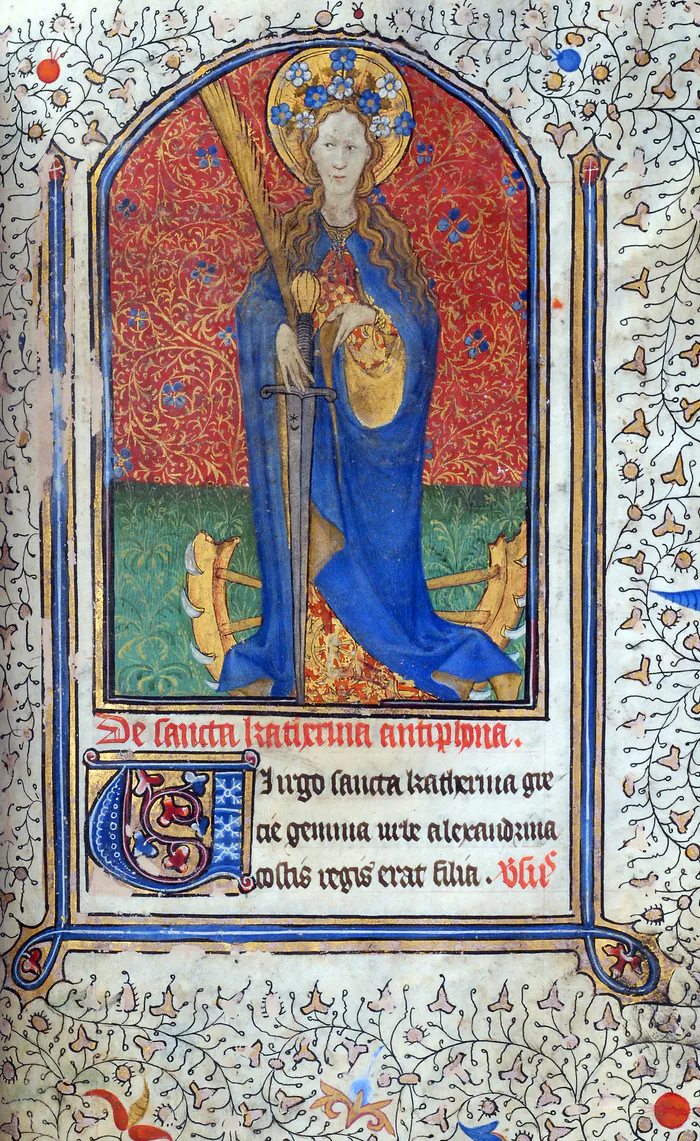 De sancta katherina antiphona.
Virgo sancta katherina gre
cie gemma urbe alexandrina
costis regis erat filia. Vsus